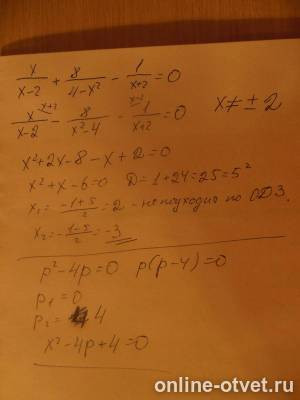 x/(x-2) + 8/(4-x²) - 1/(x+2) = 0
x/(x-2) - 8/(x²-4) - 1/(x+2) = 0   x ≠ ± 2
x²+2x-8-x+2=0
x²+x-6=0   D=1+24=25=5²
x₁ = (-1+5)/2 = 2 - не подходит по ОДЗ.
x₂ = (-1-5)/2 = -3
p²-4p=0   p(p-4)=0
p₁=0
p₂= 4
x²-4p+4=0
online-otvet.ru